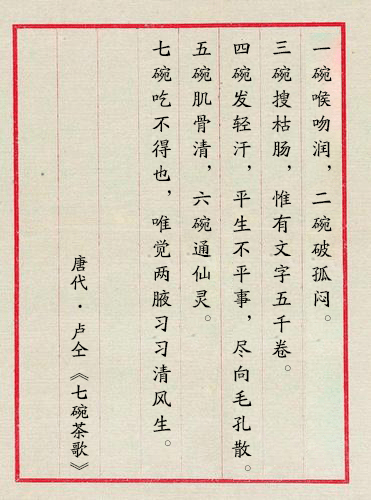 一碗喉吻润，二碗破孤闷。
三碗搜枯肠，惟有文字五千卷。
四碗发轻汗，平生不平事，尽向毛孔散。
五碗肌骨清，六碗通仙灵。
七碗吃不得也，唯觉两腋习习清风生。
唐代·卢仝《七碗茶歌》